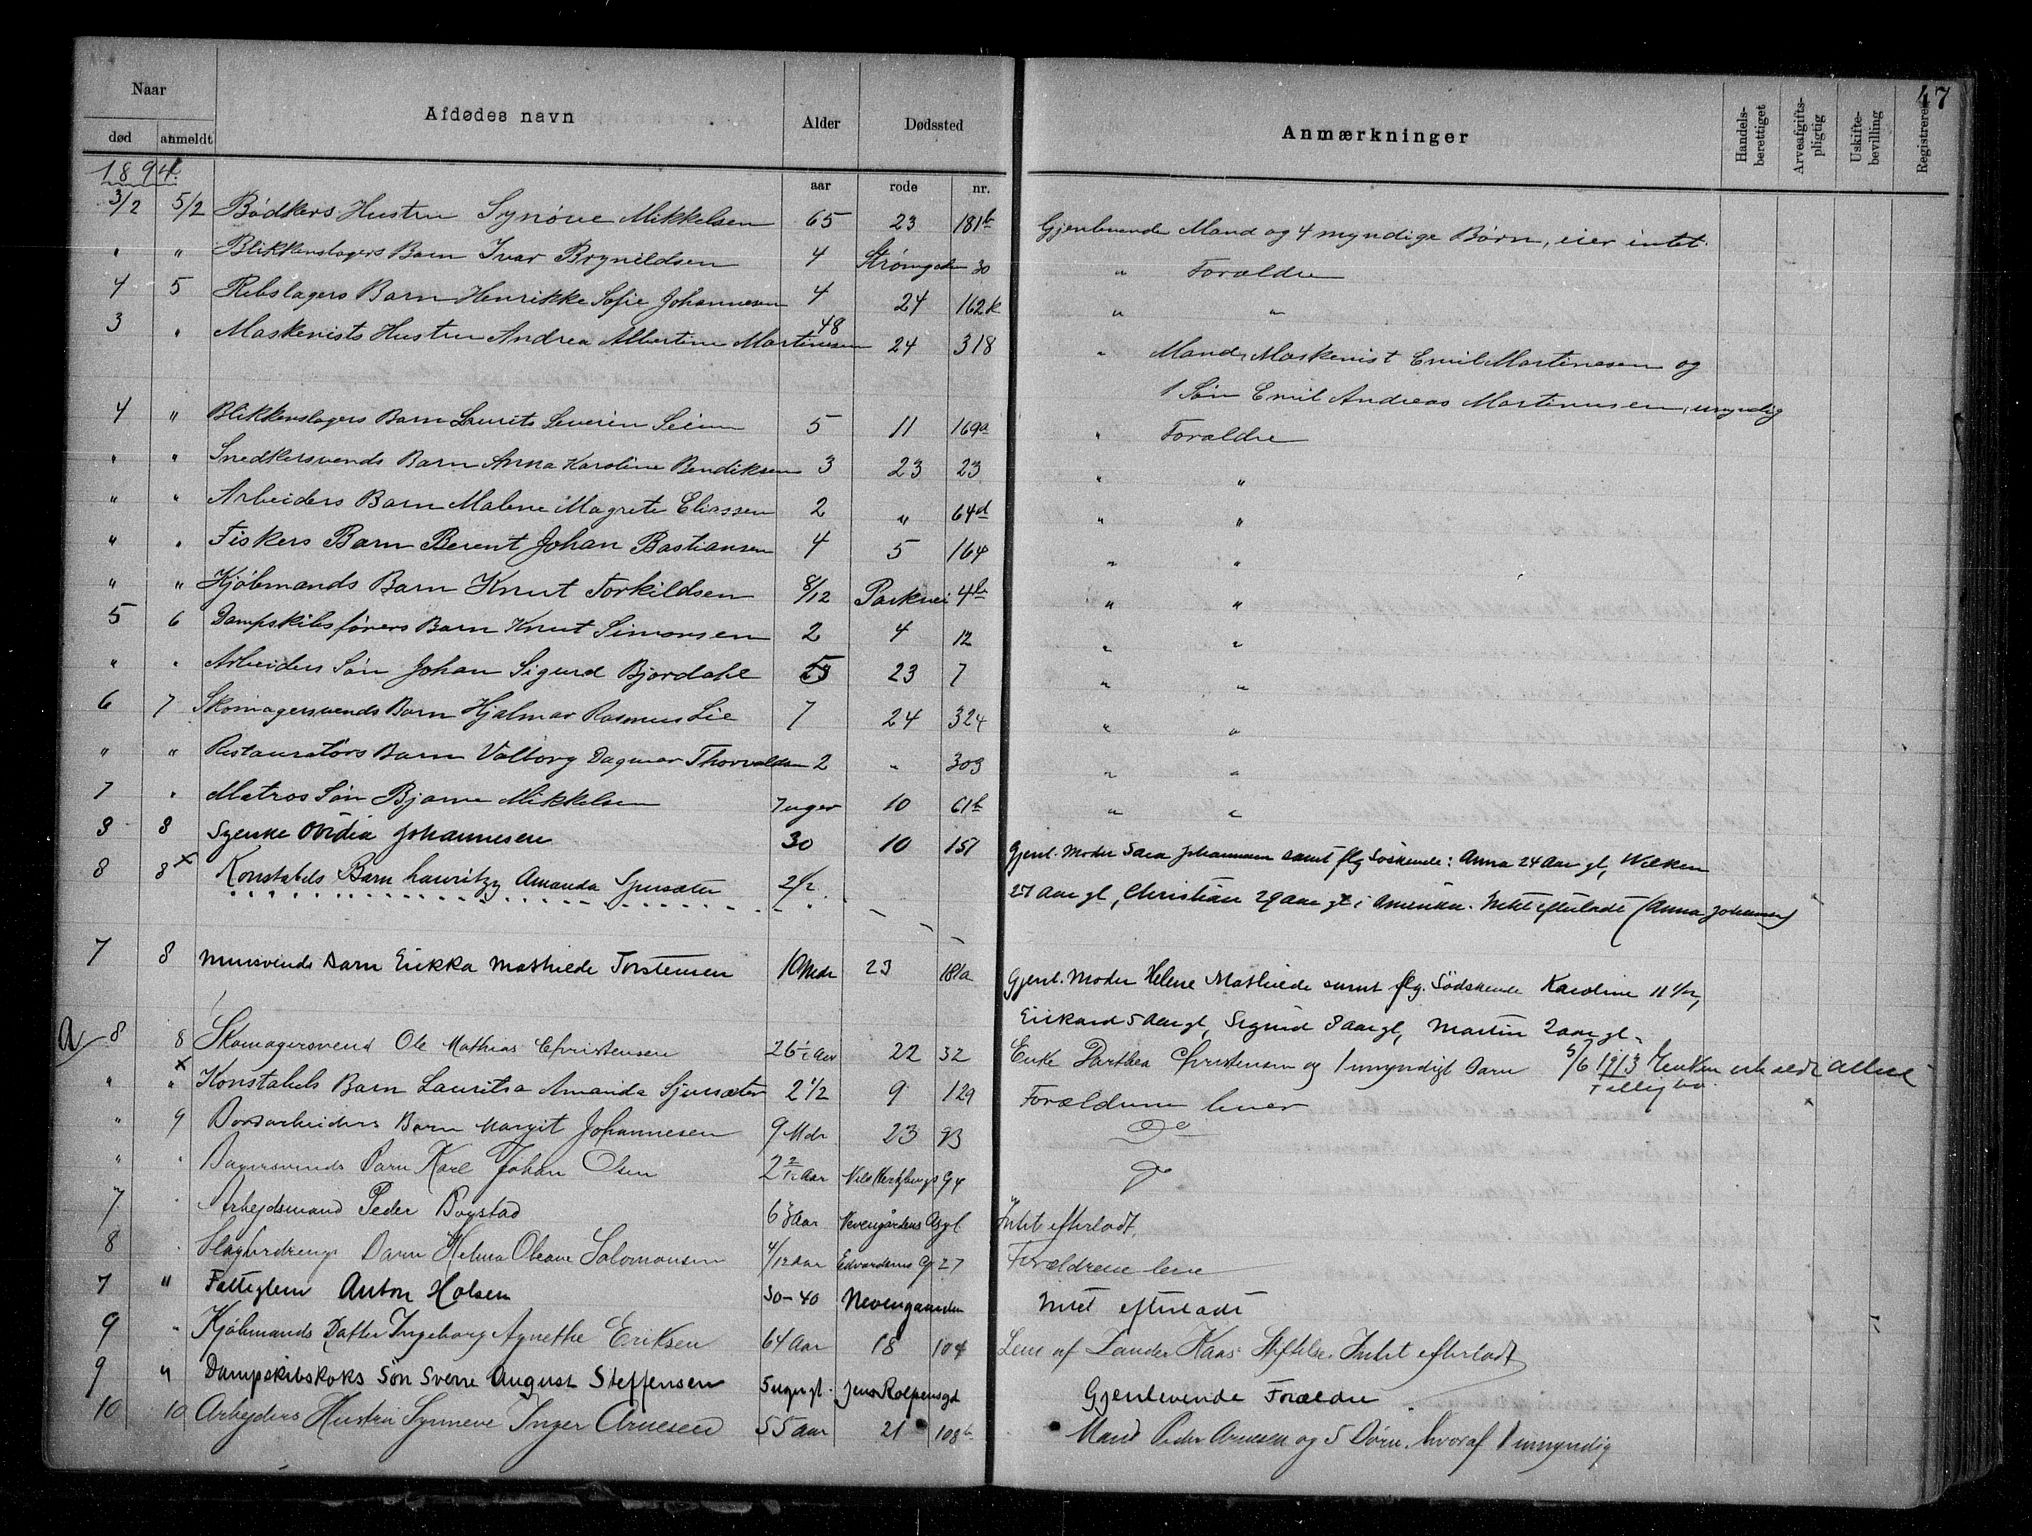 47
Naar
Afdødes navn
Alder
Dødssted
Anmærkninger
Handels-berettiget
Arveafgifts-pligtig
Uskifte-bevilling
Registreret
død anmeldt
aar rode nr.
1894.
3/2 5/2 Bødkers Hustru Synøve Mikkelsen 65 23 181b Gjenlevende Mand og 4 myndige Børn, eier intet.
" " Blikkenslagers Barn Ivar Brynildsen 4 Strømgaden 30 " Forældre
4 5 Rebslagers Barn Henrikke Sofie Johannesen 4 24 162k " "
3 " Maskenists Hustru Andrea Albertine Martinesen 48 24 318 " Mand, Maskenist Emil Martinesen og
1 Søn Emil Andreas Martinusen, umyndig
4 " Blikkenslagers Barn Laurits Severin Seim 5 11 169a " Forældre
" " Snedkersvends Barn Anna Karoline Bendiksen 3 23 23 " "
" " Arbeiders Barn Malene Magrete Eliassen 2 " 64d " "
" " Fiskers Barn Berent Johan Bastiansen 4 5 164 " "
" " Kjøbmands Barn Knut Torkildsen 8/12 Parkvei 4b " "
5 6 Dampskibsførers Barn Knut Simonsen 2 4 12 " "
" " Arbeiders Søn Johan Sigurd Bjordahl 5 23 7 " "
6 7 Skomagersvends Barn Hjalmar Rasmus Lie 7 24 324 " "
" " Restauratørs Barn Valborg Dagmar Thorvaldsen 2 " 309 " "
7 " Matros Søn Bjarne Mikkelsen 7 uger 10 61b " "
8 8 Syerske Ovidia Johannesen 30 10 157 Gjenl. Moder Sara Johannesen samt flg Søskende: Anna 24 Aar gl, Willken
27 Aar gl, Christian 29 Aar gl i Amerika. Intet efterladt (Anna Johannesen)
8 8 x Konstabels Barn Lauritzy Amanda Sjursæter 2 1/2
7 8 Murersvends Barn Erikka Mathilde Torstensen 10 Mdr 23 181a Gjenl. Moder Helene Mathilde samt flg. Sødskende Karoline 11 1/2,
Erikard 5 Aar gl, Sigurd 8 aar gl, Martin 2 aar gl.
A 8 8 Skomagersvend Ole Mathias Christensen 26 1/2 Aar 22 32 Enke Darthea Christensen og 1 umyndigt Barn 5/6 1913 Enken
" x " Konstabels Barn Lauritsa Amanda Sjursæter 2 1/2 9 129 Forældrene lever
" 9 Barn Margit Johannesen 9 Mdr 23 93 Do
" " Bagersvends Barn Karl Johan Olsen 2 Aar 94 Do
7 " Arbejdsmand Peder Bogstad 63 Aar Nevengårdens Asyl Intet efterladt.
8 " Slagterdrengs Barn Helma Oleane Salomonsen 4/12 Aar Edvardsens G. 27 Forældrene leve
7 " Fattiglem Anton Holsen 30-40 Nevengaarden Intet efterladt
9 " Kjøbmands Datter Ingeborg Agnethe Eriksen 64 Aar 18 104 Lem af Zander Kaas Stiftelse. Intet efterladt
9 " Dampskibskoks Søn Sverre August Steffensen 5 uger gl. Jens Rolfsensgd Gjenlevende Forældre
10 10 Arbejders Hustru Synneve Inger Arnesen 55 Aar 21 108b Mand Peder Arnesen og 5 Børn, hvoraf 1 umyndig